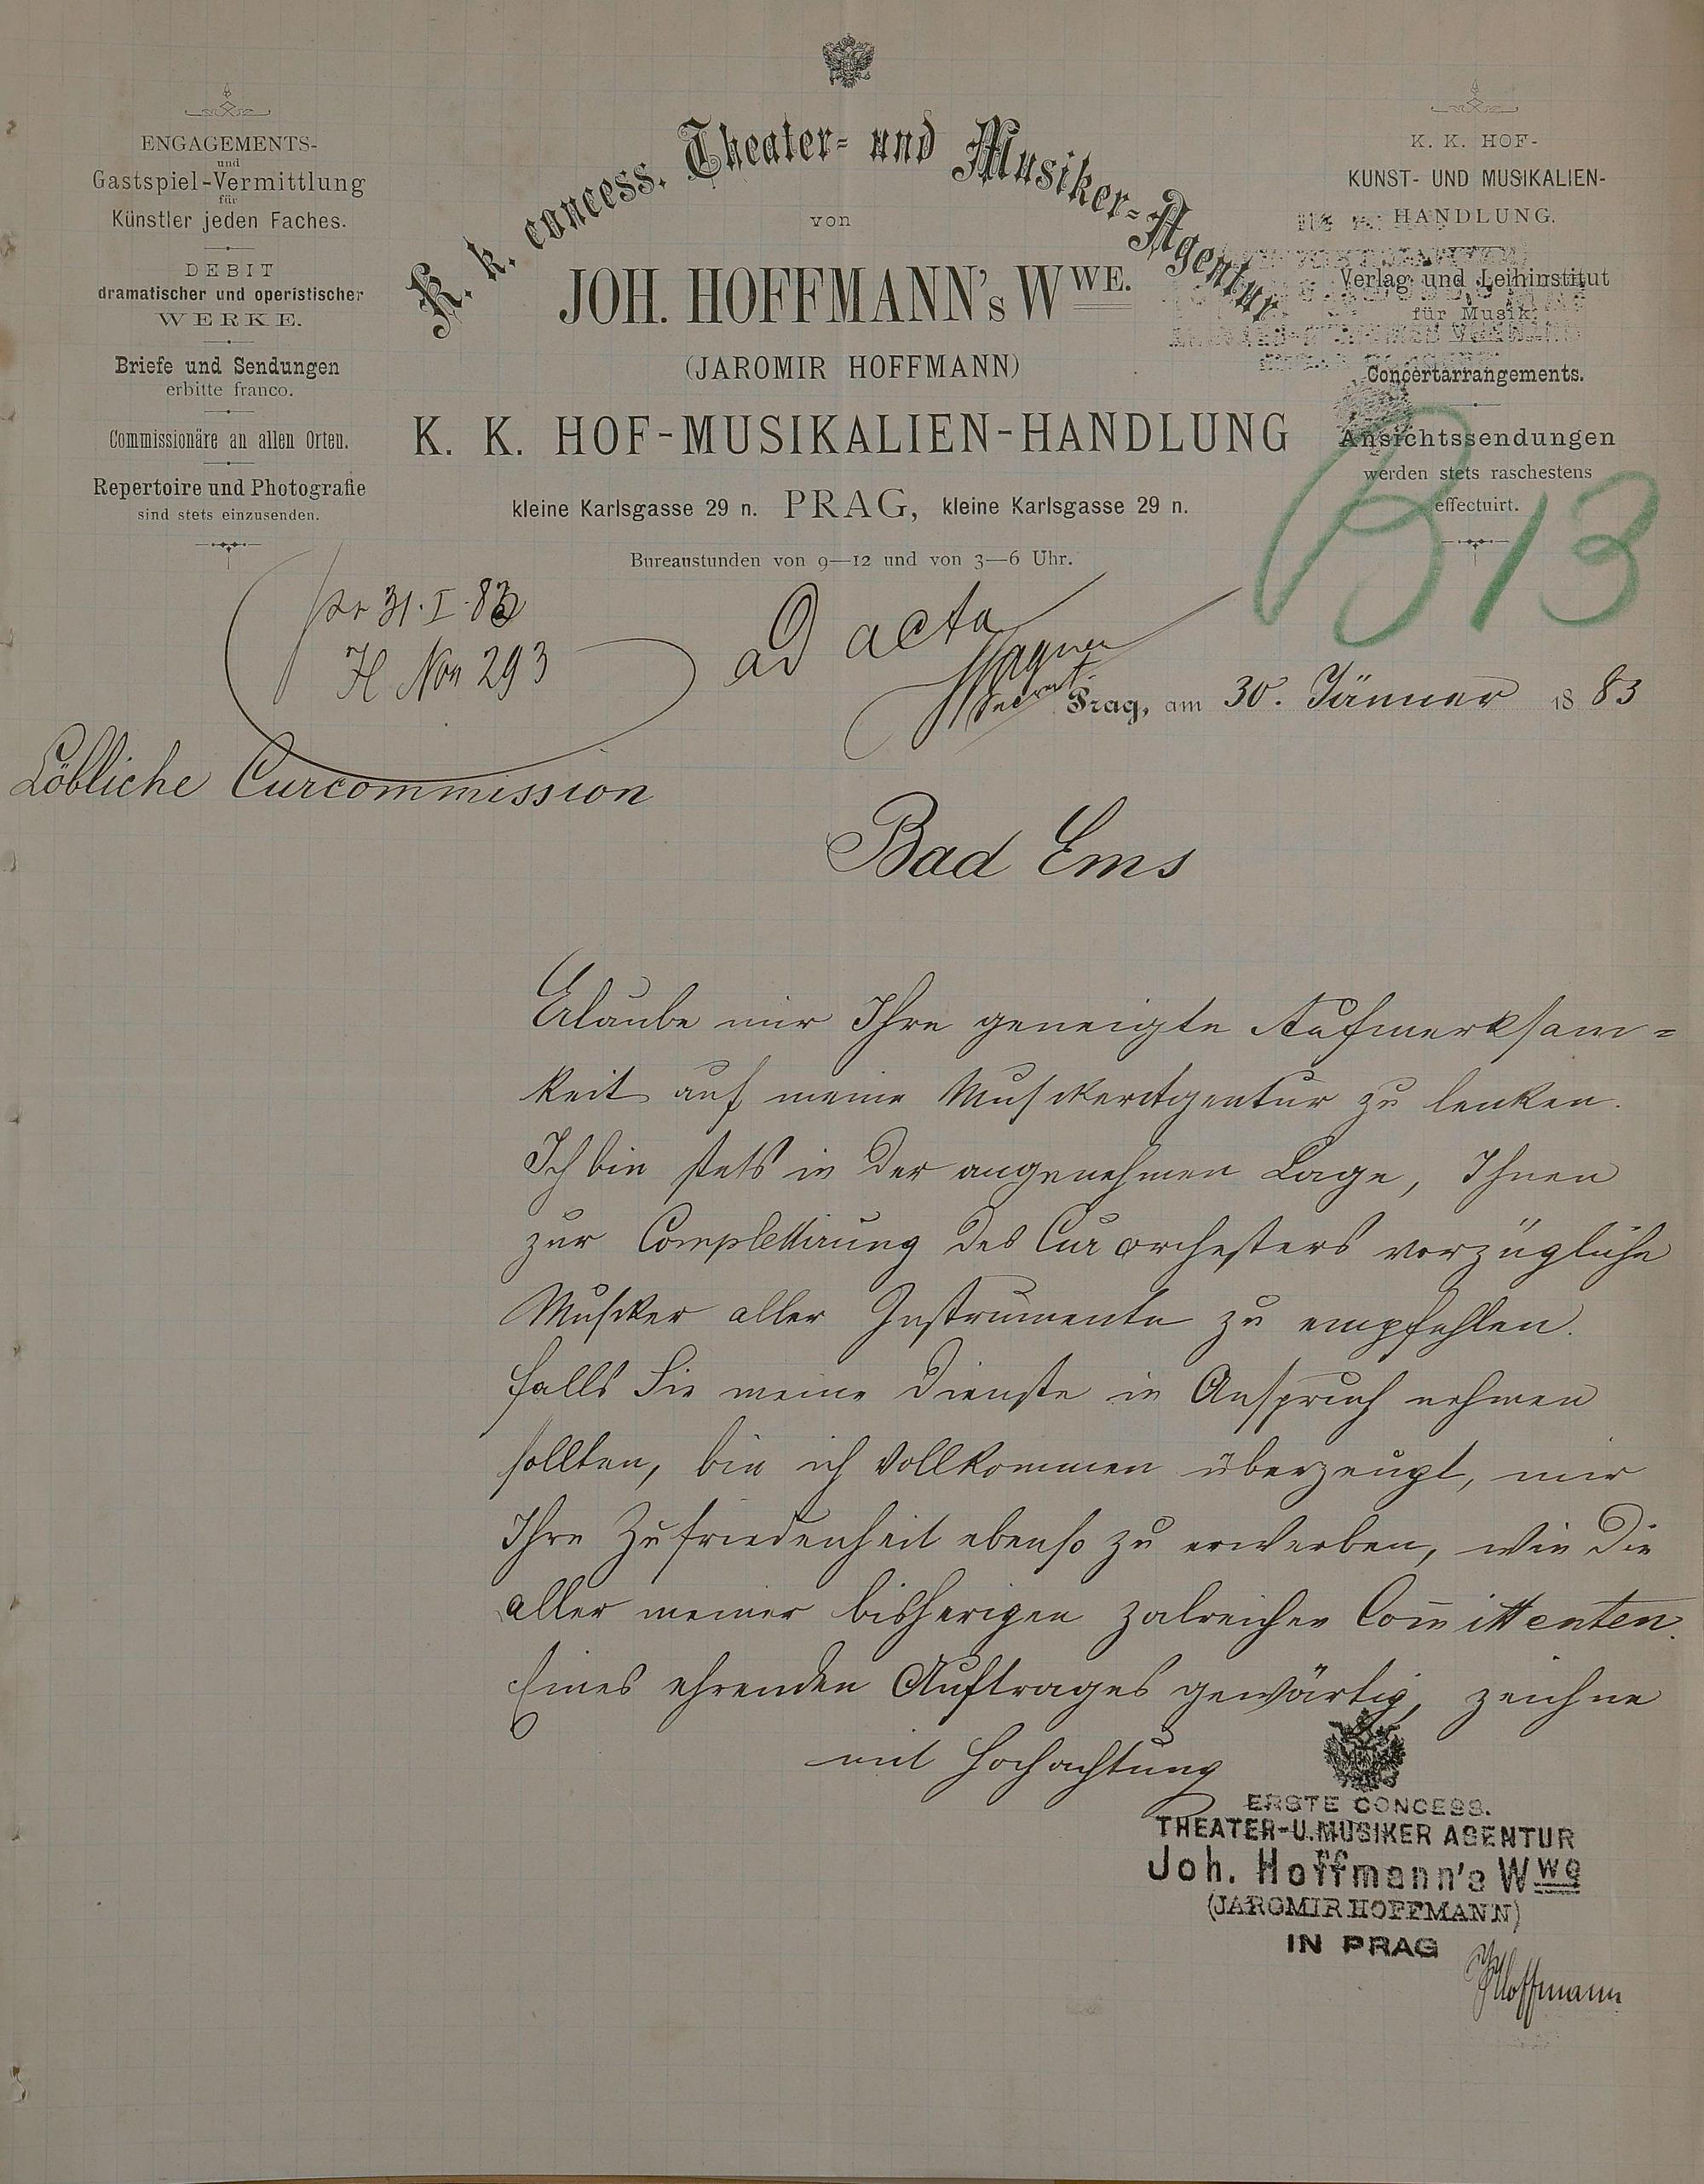 ENGAGEMENTS-
und
Gastspiel-Vermittlung
für
Künstler jeden Faches.
DEBIT
dramatischer und operistischer
WERKE.
Briefe und Sendungen
erbitte franco.
Commissionäre an allen Orten.
Repertoire und Photografie
sind stets einzusenden.
K. k. concess. Theater- und Musiker-Agentur
von
JOH. HOFFMANN's WWE.
(JAROMIR HOFFMANN)
K. K. HOF-MUSIKALIEN-HANDLUNG
kleine Karlsgasse 29 n. PRAG, kleine Karlsgasse 29 n.
Bureaustunden von 9—12 und von 3—6 Uhr.
K. K. HOF-
KUNST- UND MUSIKALIEN-
HANDLUNG.
Verlag und Leihinstitut
für Musik.
Concertarrangements.
Ansichtssendungen
werden stets raschestens
effectuirt.
B 13
pr 31. I. 83
293
ad acta
Wagner
Secret.
Prag, am 30. Jänner 1883
Löbliche Curcommission
Bad Ems
Erlaube mir Ihre geneigte Aufmerksam=
keit auf meine Musikeragentur zu lenken.
Ich bin stets in der angenehmen Lage, Ihnen
zur Complettirung des Curorchesters vorzügliche
Musiker aller Instrumente zu empfehlen.
Falls Sie meine Dienste in Anspruch nehmen
sollten, bin ich vollkommen überzeugt, mir
Ihre Zufriedenheit ebenso zu erwerben, wie die
aller meiner bisherigen zalreichen Com̅ittenten.
Eines ehrenden Auftrages gewärtig, zeichne
mit Hochachtung
ERSTE CONCESS.
THEATER-U.MUSIKER AGENTUR
Joh. Hoffmann's Wwe
(JAROMIR HOFFMANN)
IN PRAG
JHoffmann